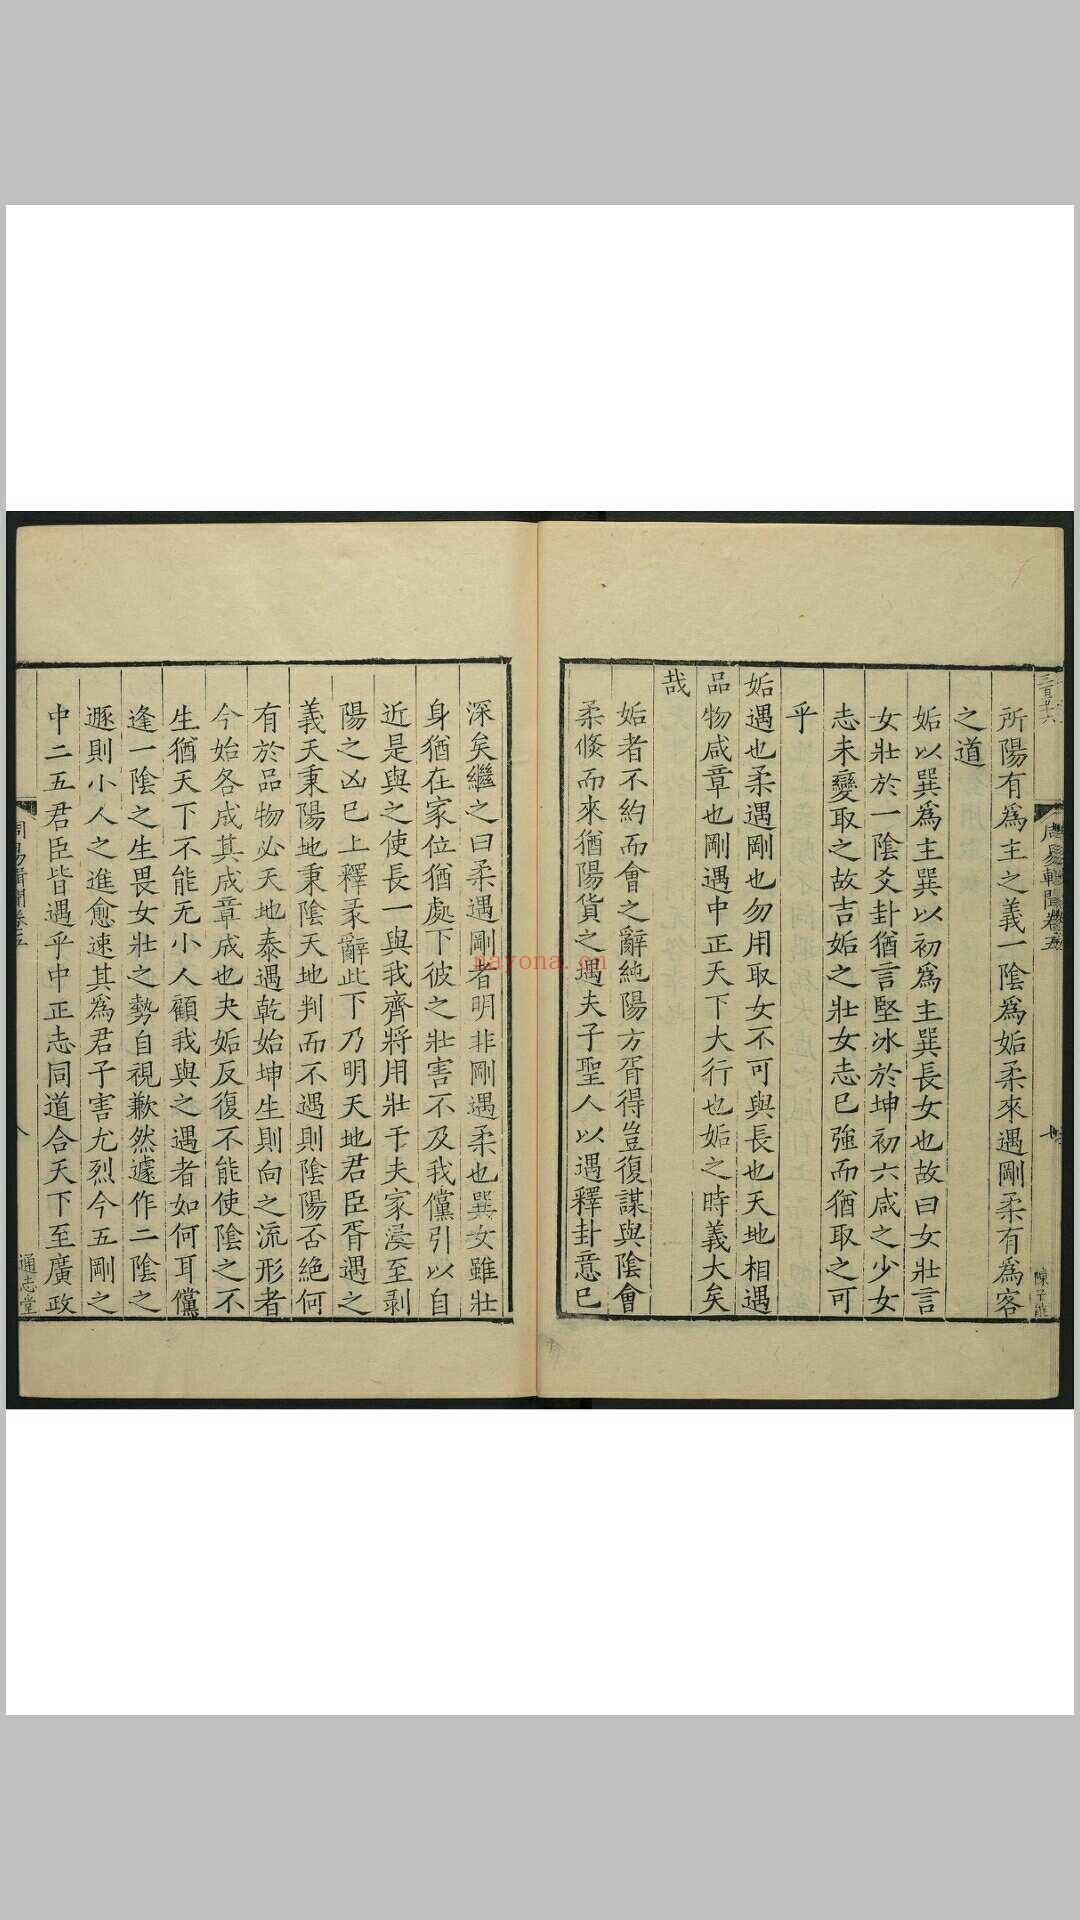 所陽有爲主之義一陰爲姤柔來遇剛柔有爲客
之道
姤以巽爲主巽以初爲主巽長女也故曰女壯言
女壯於一陰爻卦猶言堅冰於坤初六咸之少女
志未變取之故吉姤之壯女志已強而猶取之可
乎
姤遇也柔遇剛也勿用取女不可與長也天地相遇
品物咸章也剛遇中正天下大行也姤之時義大矣
哉
姤者不約而會之辭純陽方胥得豈復謀與陰會
柔倏而來猶陽貨之遇夫子聖人以遇釋卦意已
周易輯聞卷五
陳子能
深矣繼之曰柔遇剛者明非剛遇柔也巽女雖壯
身猶在家位猶處下彼之壯害不及我儻引以自
近是與之使長一與我齊將用壯于夫家浸至剥
陽之凶已上釋彖辭此下乃明天地君臣胥遇之
義天秉陽地秉陰天地判而不遇則陰陽否絶何
有於品物必天地泰遇乾始坤生則向之流形者
今始各成其成章咸也夬姤反復不能使陰之不
生猶天下不能无小人顧我與之遇者如何耳儻
逢一陰之生畏女壯之勢自視歉然遽作二陰之
遯則小人之進愈速其爲君子害尤烈今五剛之
中二五君臣皆遇乎中正志同道合天下至廣政
周易輯聞卷五
八
通志堂
nayona.cn